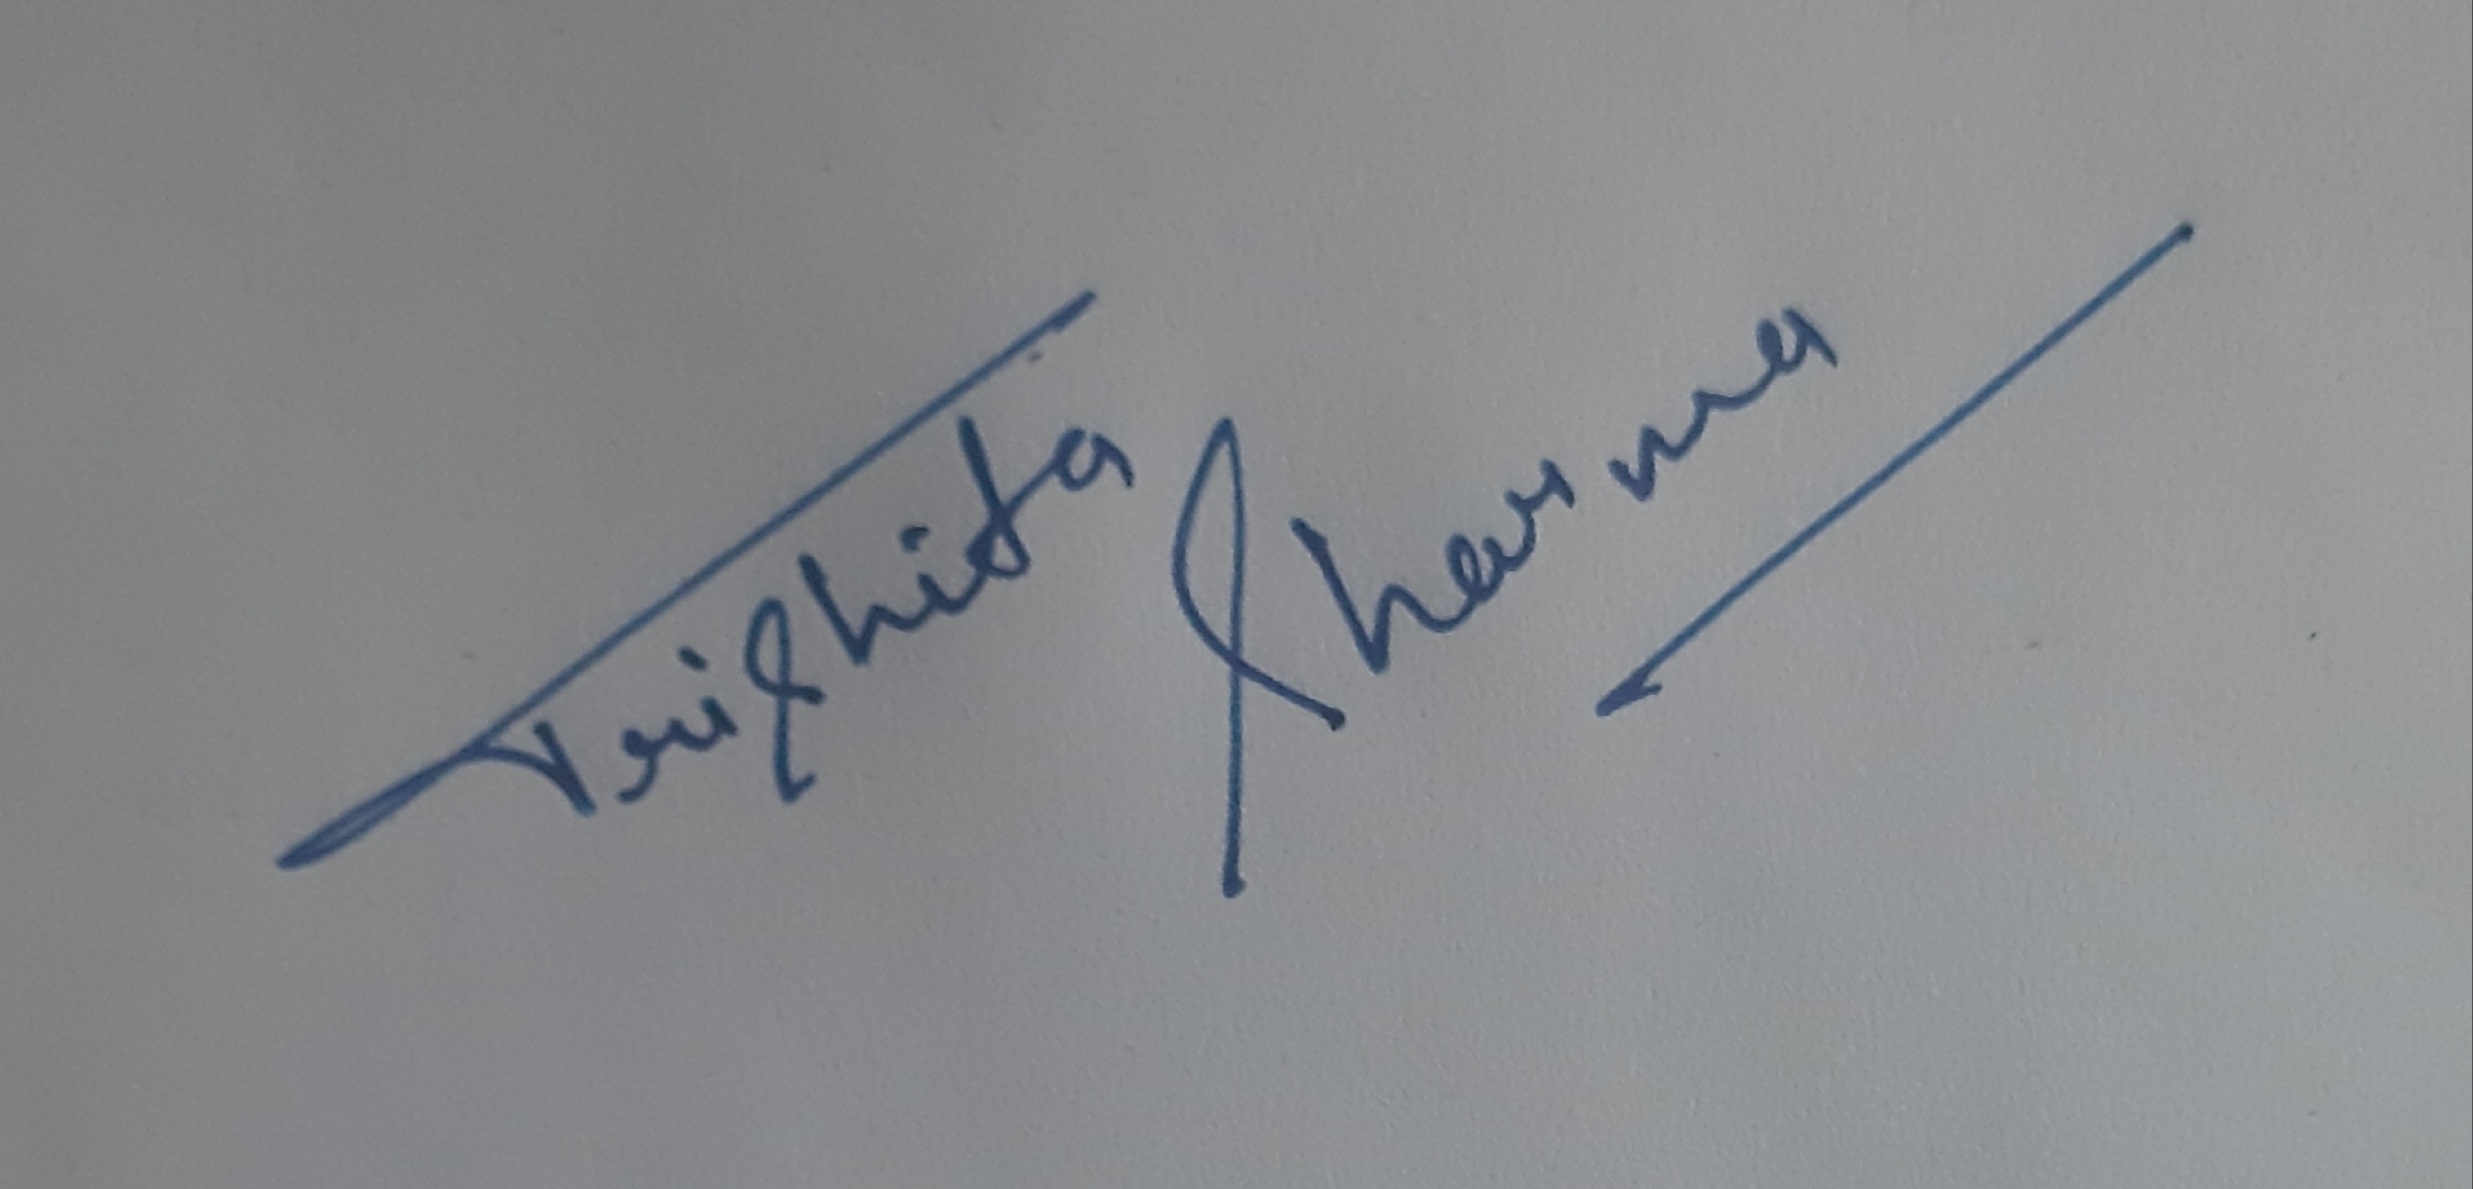 Trishita Sharma